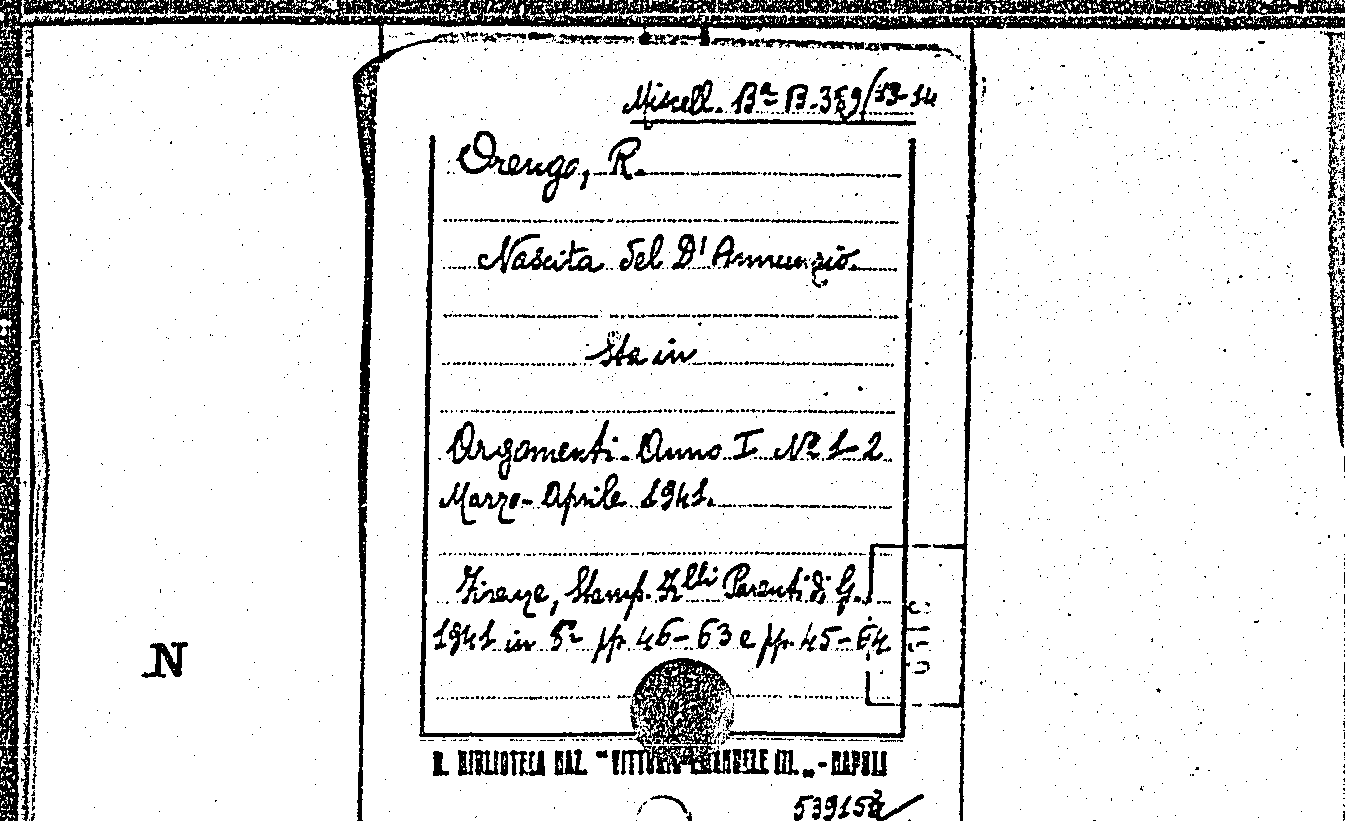 Miscell. Bª B. 359/13-14
Orengo, R.
Nascita del D'Annunzio.
Sta in
Argomenti. Anno I Nº 1-2
Marzo-Aprile 1941.
Firenze, Stamp. F.lli Parenti di G.
1941 in 8º pp. 46-63 e pp. 45-64
N
R. BIBLIOTECA NAZ. "VITTORIO EMANUELE III." - NAPOLI